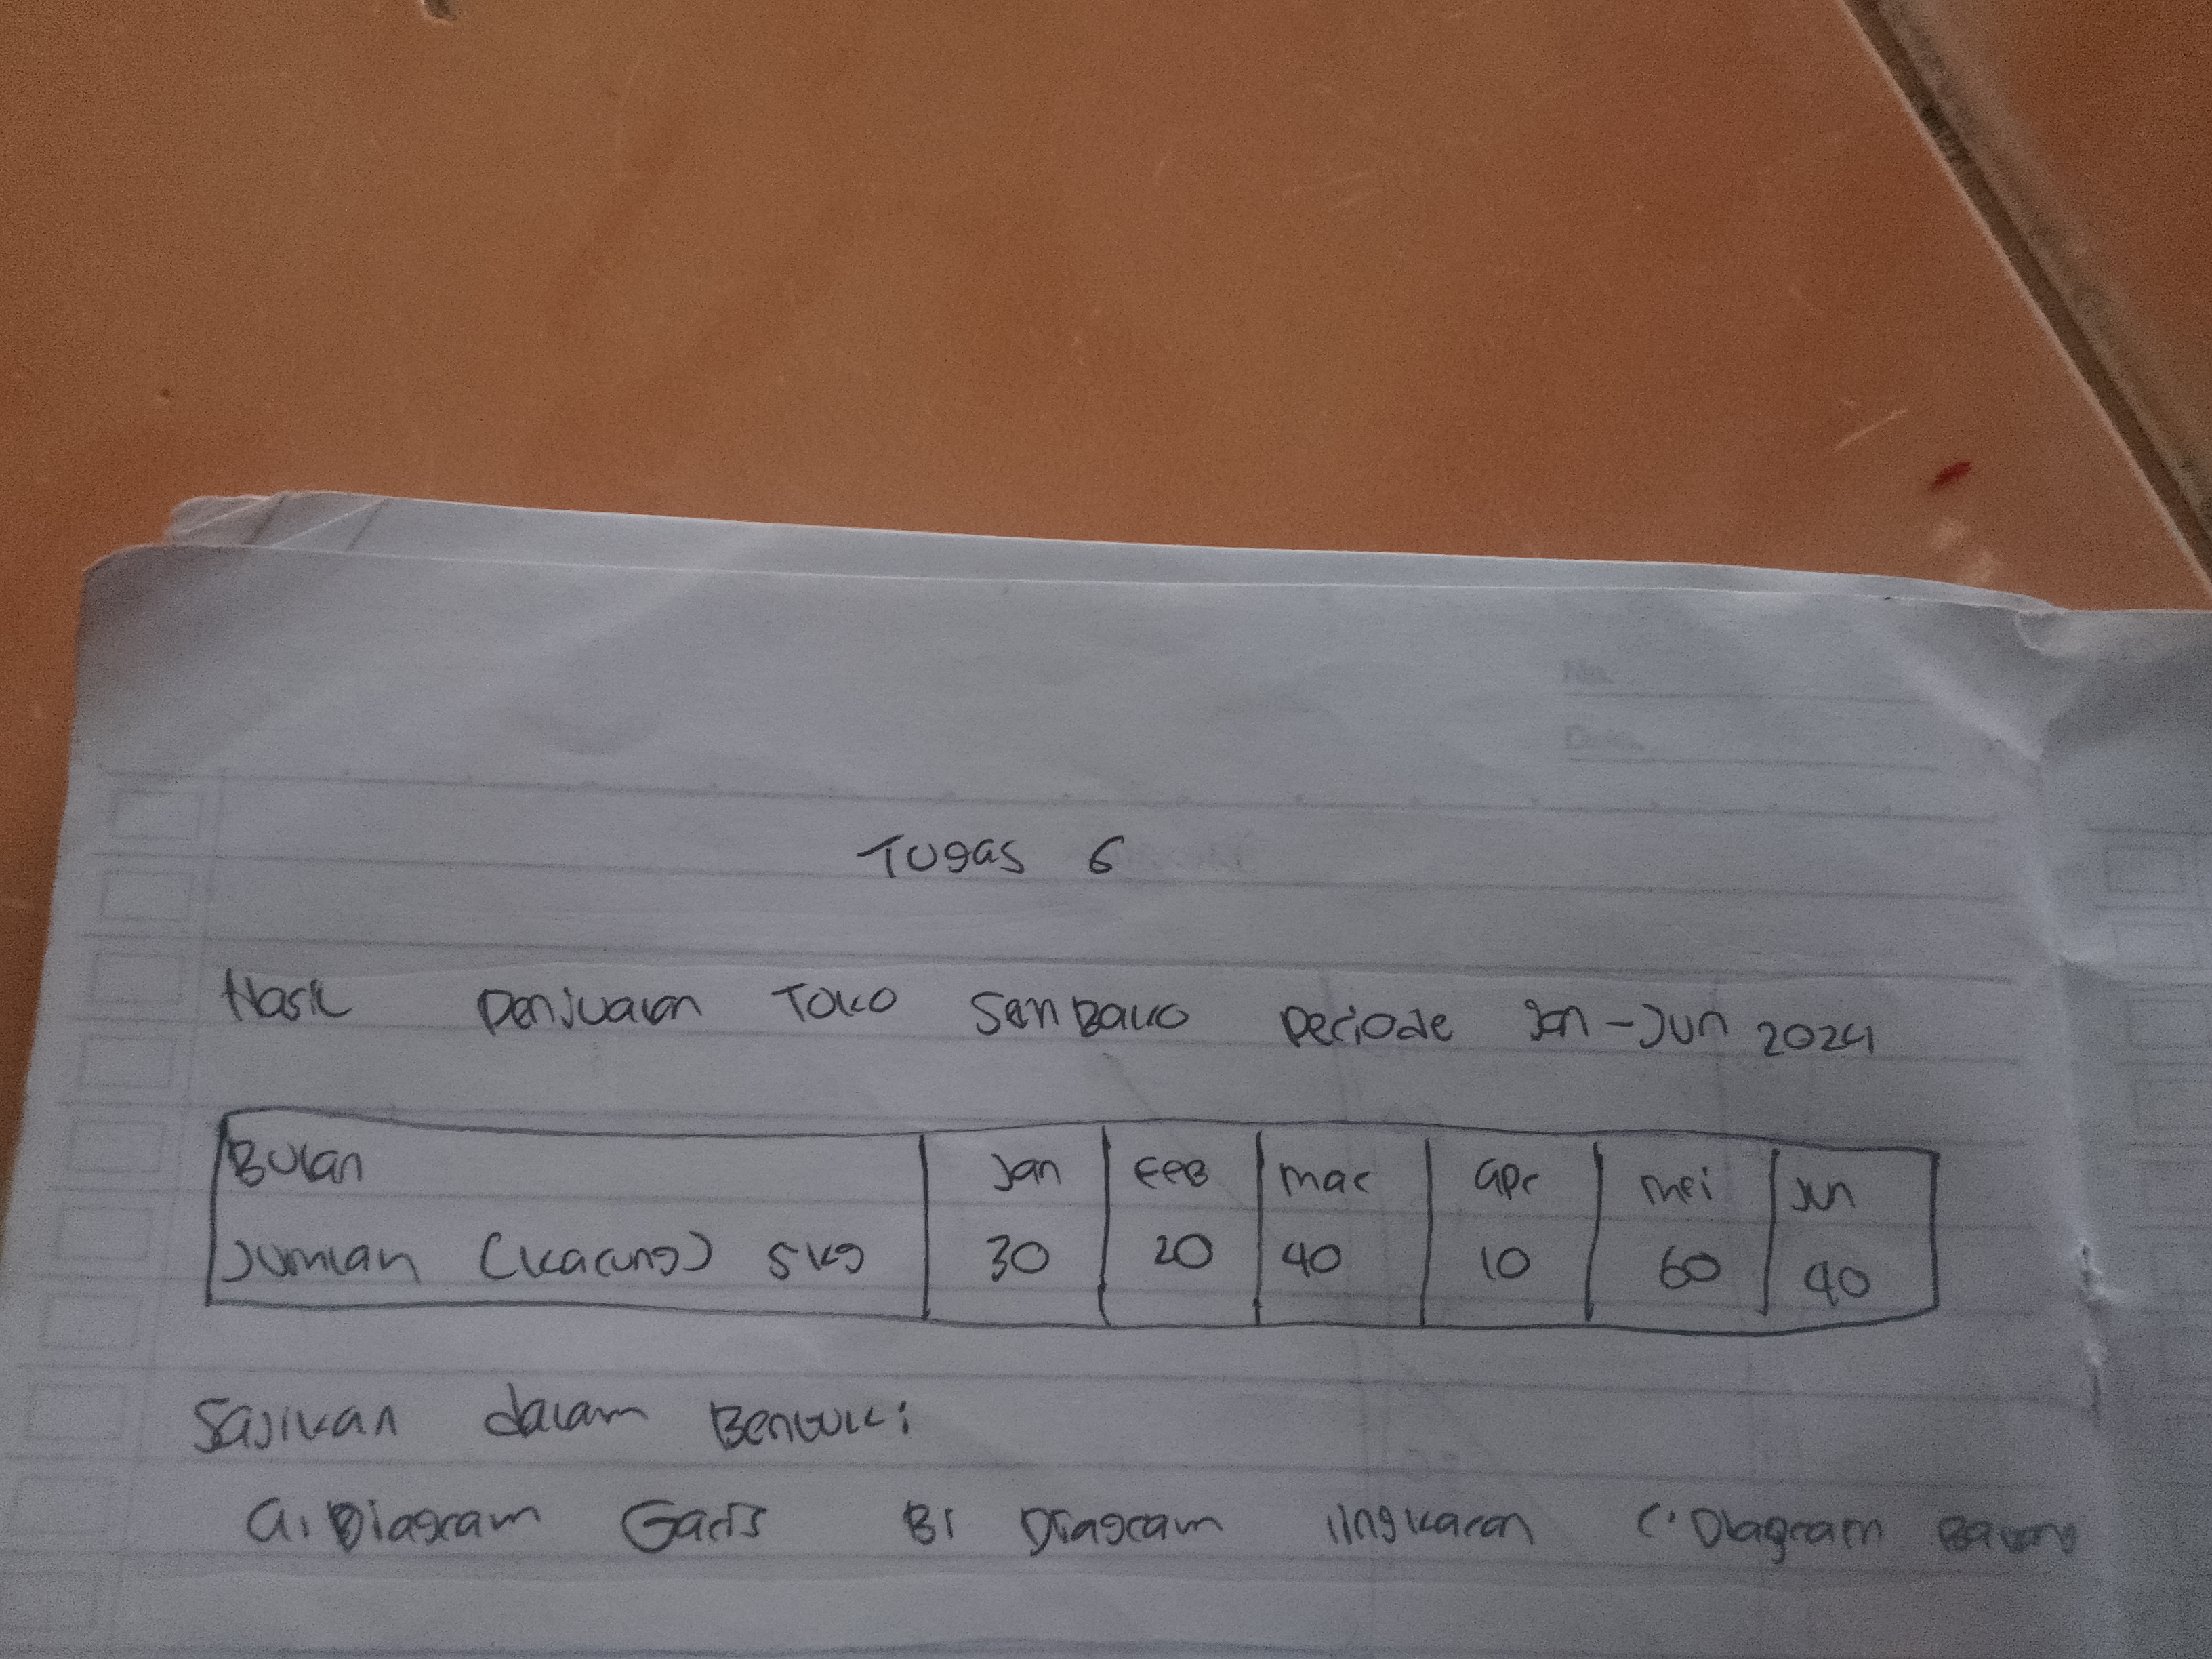 No.
Date.
Tugas 6
Hasil Penjualan Toko Sembako Periode Jan - Jun 2024
Bulan Jan FeB mar apr mei jun
Jumlah (karung) 5 kg 30 20 40 10 60 40
Sajikan dalam Bentuk :
a. Diagram Garis B. Diagram lingkaran C. Diagram Batang